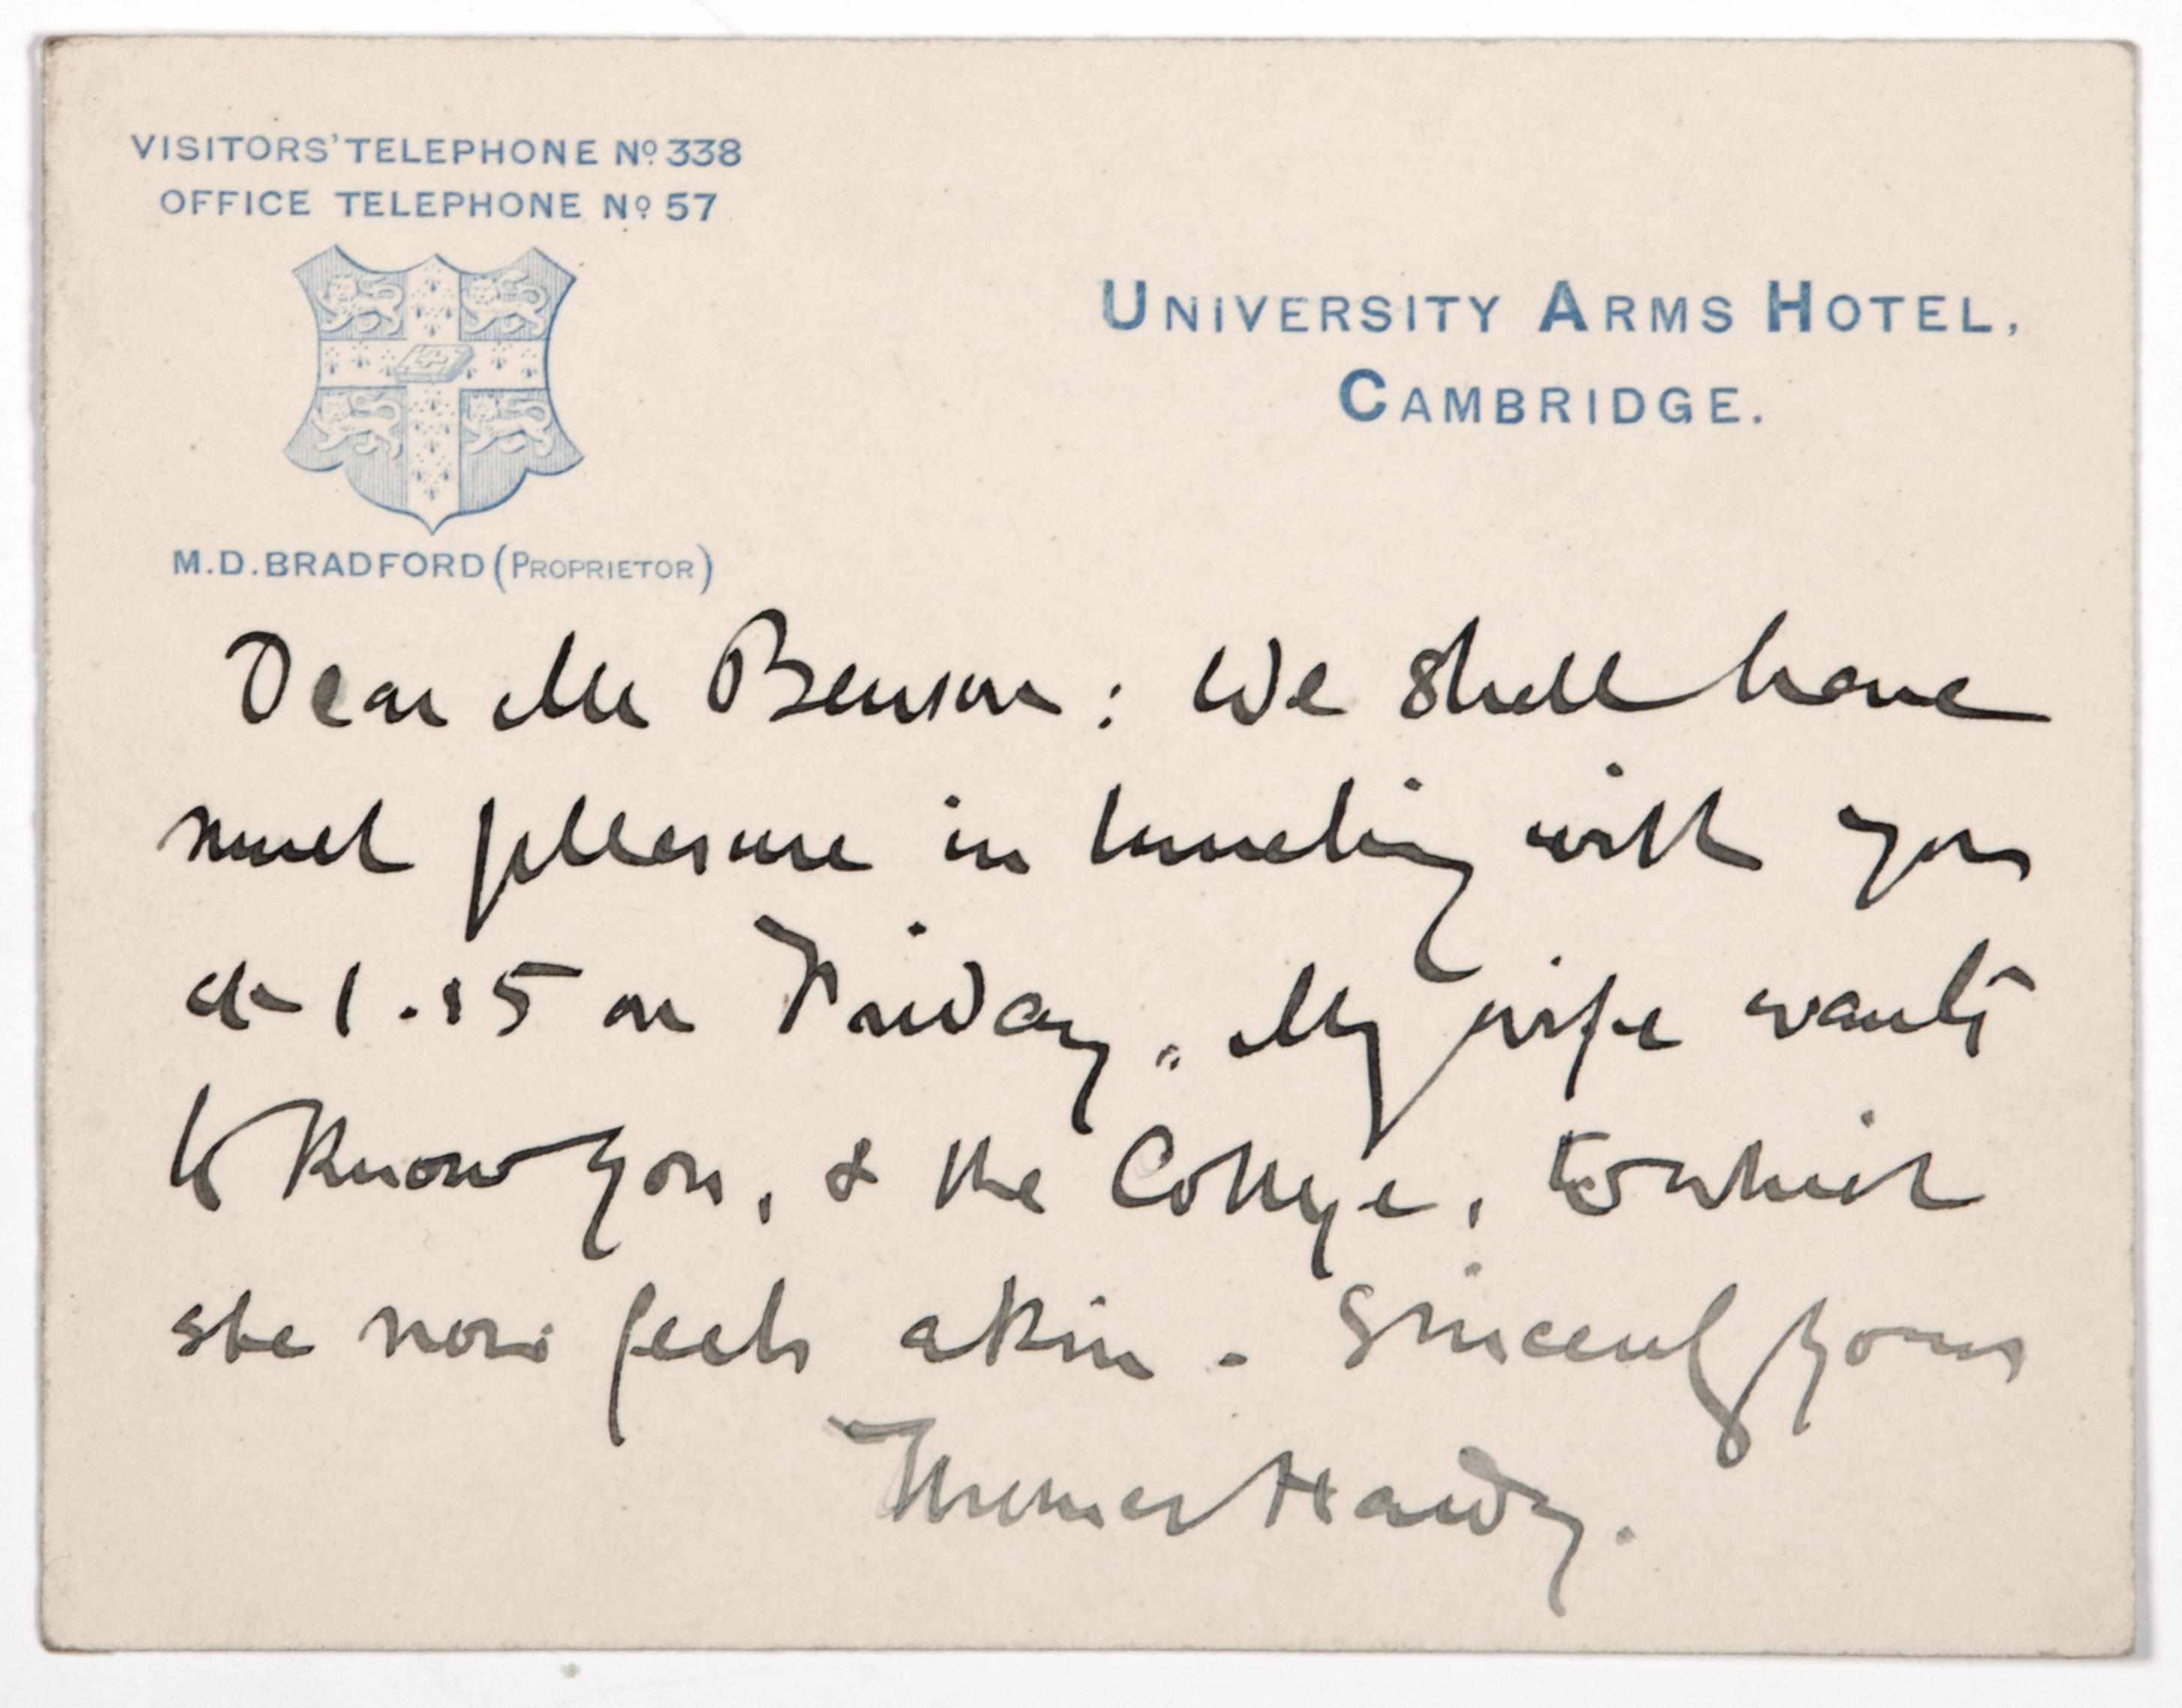 VISITORS' TELEPHONE Nº 338
OFFICE TELEPHONE Nº 57
UNIVERSITY ARMS HOTEL,
CAMBRIDGE.
M.D. BRADFORD (PROPRIETOR)
Dear Mr Benson: We shall have
much pleasure in lunching with you
at 1.15 on Friday. My wife wants
to know you, & the College, to which
she now feels akin. Sincerely yours
Thomas Hardy.